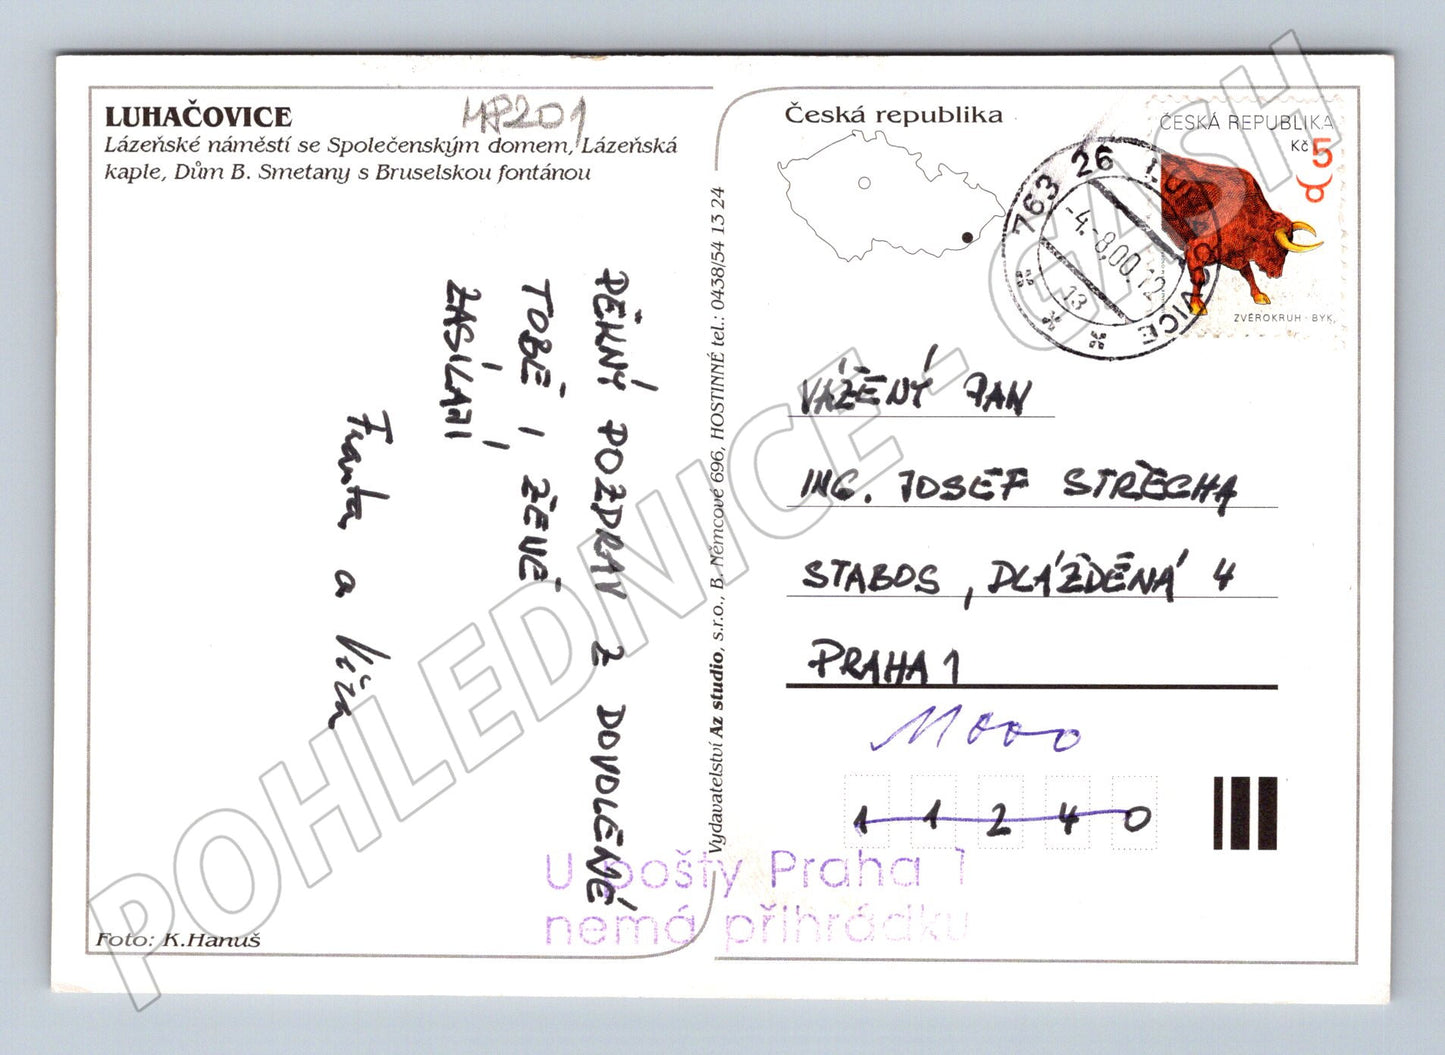 LUHAČOVICE
Lázeňské náměstí se Společenským domem, Lázeňská
kaple, Dům B. Smetany s Bruselskou fontánou
MP201
PĚKNÝ POZDRAV Z DOVOLENÉ
TOBĚ I ŽENĚ
ZASÍLAJÍ
Franta a Víza
Foto: K.Hanuš
Vydavatelství Az studio, s.r.o., B. Němcové 696, HOSTINNÉ tel.: 0438/54 13 24
Česká republika
ČESKÁ REPUBLIKA
Kč 5
ZVĚROKRUH - BYK
763 26 LUHAČOVICE
-4.-8.00.12
13
VÁŽENÝ PAN
ING. JOSEF STŘECHA
STABOS, DLÁŽDĚNÁ 4
PRAHA 1
11000
11240
U pošty Praha 1
nemá přihrádku
POHLEDNICE - GASH